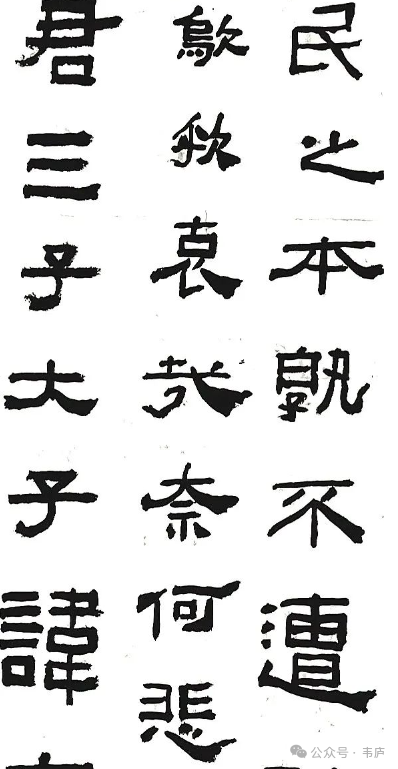 民之本孰不遭
歍哀哉奈何悲
君三子大子諱
公众号·韦庐